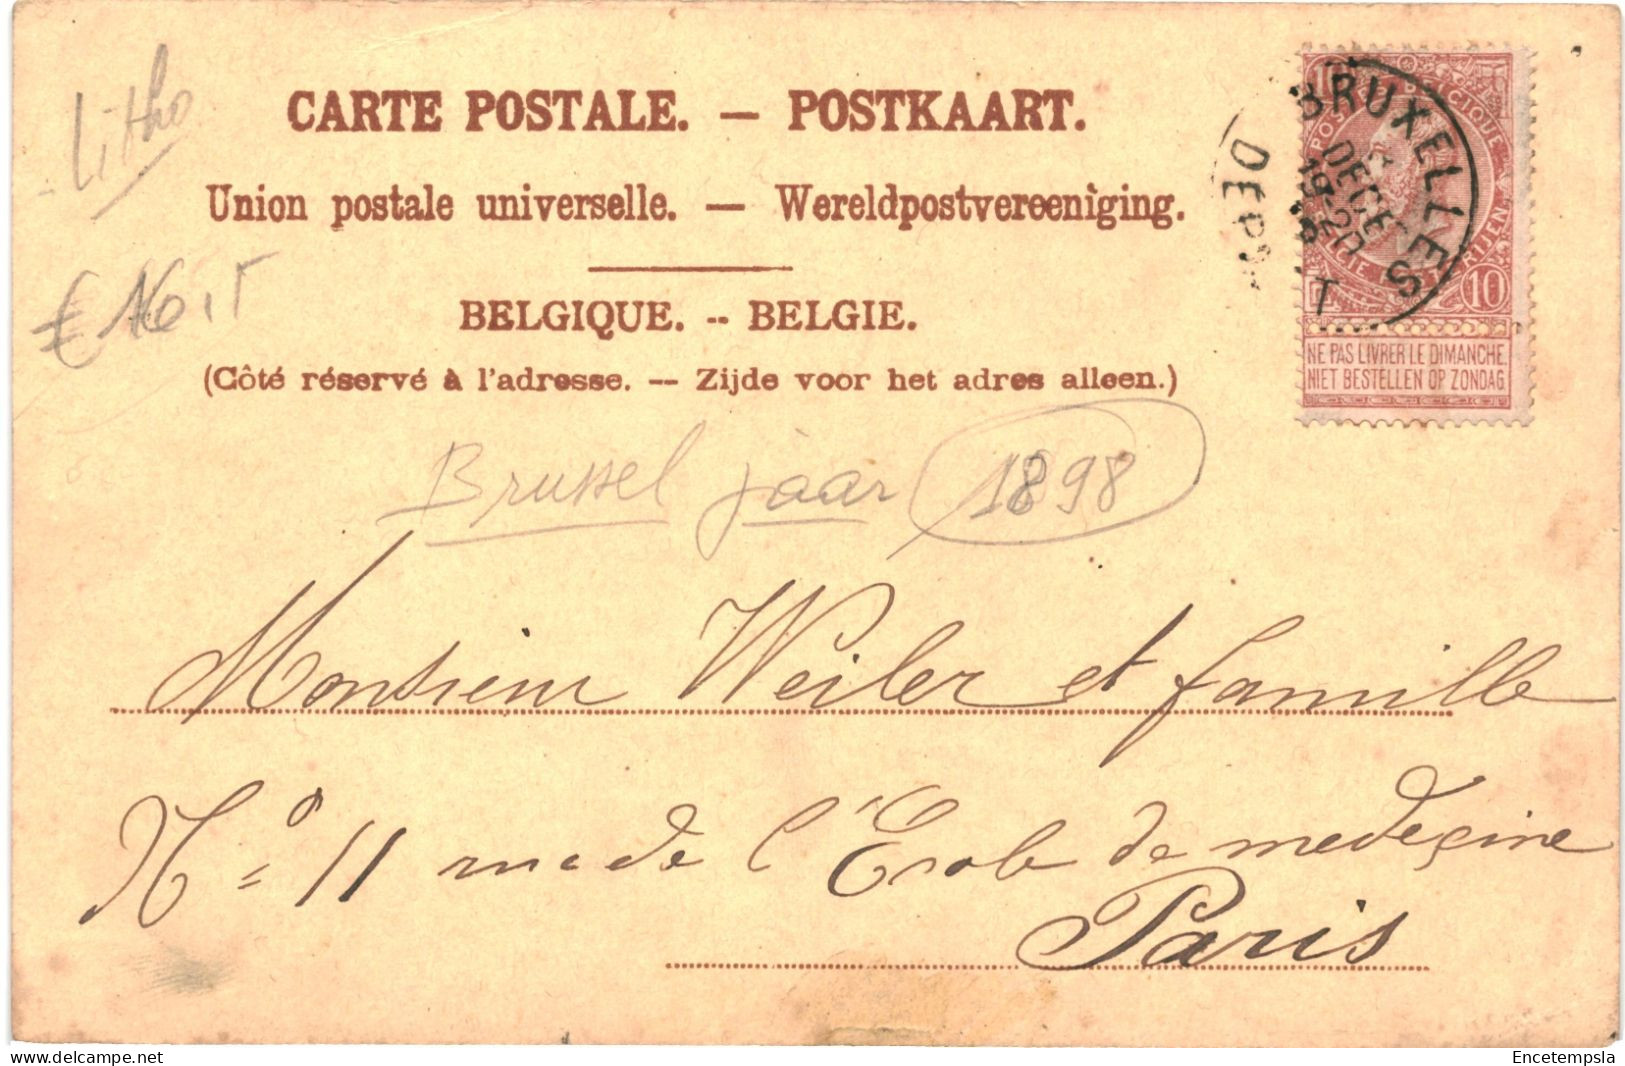 CARTE POSTALE. — POSTKAART.
Union postale universelle. — Wereldpostvereeniging.
BELGIQUE. -- BELGIE.
(Côté réservé à l'adresse. -- Zijde voor het adres alleen.)
Litho
€ 16.5
BRUXELLES
DECE
19-20
DEP T
10
NE PAS LIVRER LE DIMANCHE
NIET BESTELLEN OP ZONDAG
Brussel jaar 1898
Monsieur Weiler et famille
No 11 rue de l'École de medeçine
Paris
delcampe.net
Encetempsla